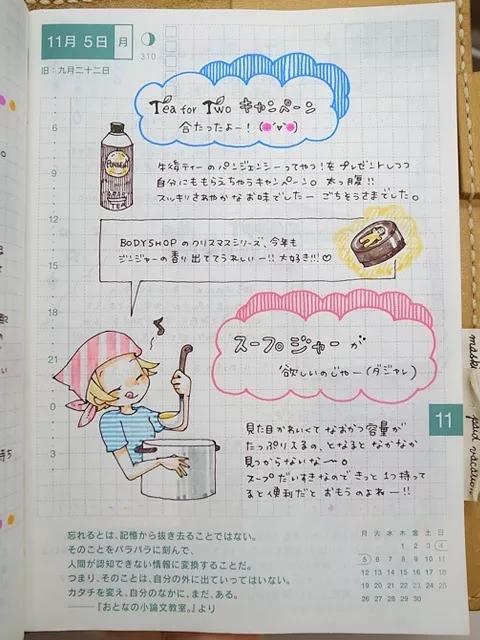 11月 5日 月
310
旧：九月二十二日
Tea for Two キャンペーン
合たったよー！
午後ティーの パンジェンシーってやつ！を プレゼントしつつ
自分にももらえちゃうキャンペーン。太っ腹!!
スッキリさわやかな お味でしたー ごちそうさまでした。
BODYSHOP のクリスマスシリーズ、今年も
ジンジャーの香り出ててうれしいー!! 大好き!!!♡
スープジャーが
欲しいのじゃー(ダジャレ)
見た目かわいくて なおかつ容量が
たっぷり入るの、となると なかなか
見つからないな〜。
スープだいすきなので きっと 1つ持って
ると 便利だと おもうのよねー!!
6
9
12
15
18
21
0
3
11
忘れるとは、記憶から抜き去ることではない。
そのことをバラバラに刻んで、
人間が認知できない情報に変換することだ。
つまり、そのことは、自分の外に出ていってはいない。
カタチを変え、自分のなかに、まだ、ある。
――『おとなの小論文教室。』より
月 火 水 木 金 土 日
1 2 3 4
5 6 7 8 9 10 11
12 13 14 15 16 17 18
19 20 21 22 23 24 25
26 27 28 29 30